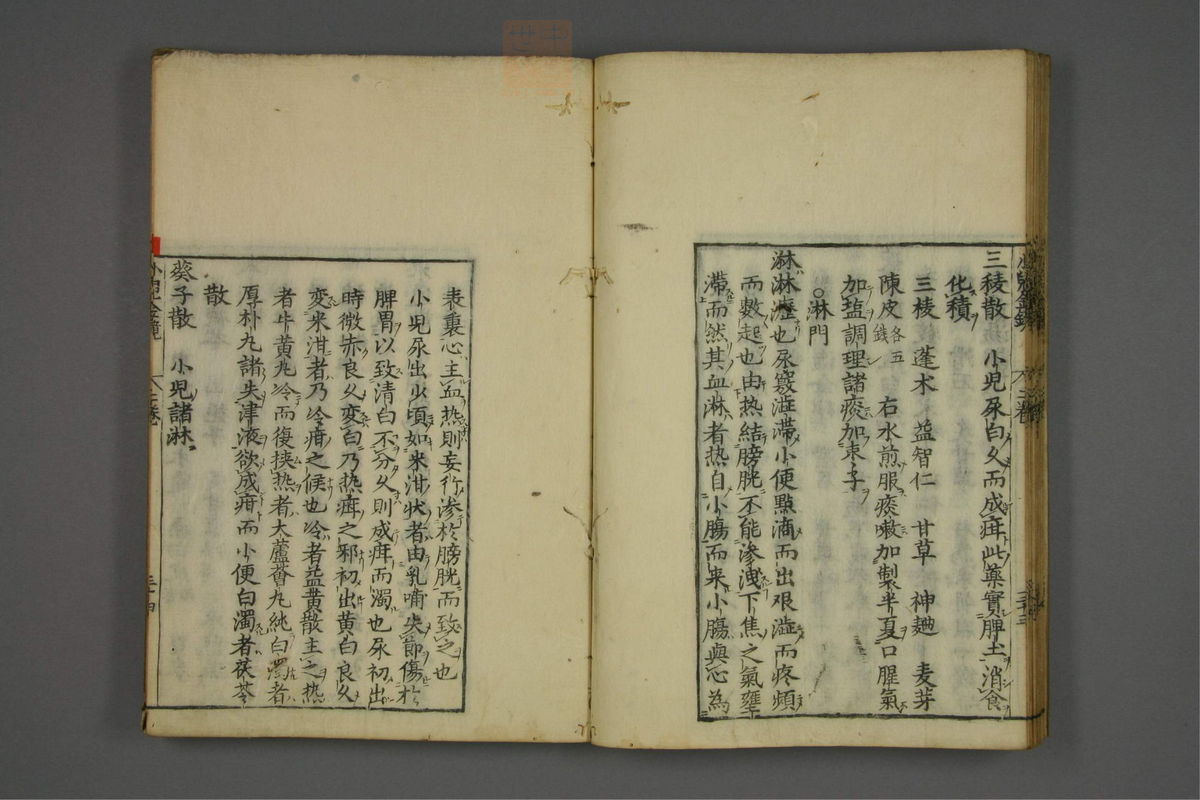 三稜散　小児尿白久而成疳此薬實脾土消食
化積
三稜　蓬朮　益智仁　甘草　神麯　麦芽
陳皮各五錢　右水煎服痰嗽加製半夏口腥氣
加盐調理諸痰加朿子
○淋門
淋淋瀝也尿竅澁滞小便點滴而出艰澁而疼頻
而數起也由热結膀胱不能滲洩下焦之氣壅
滞而然其血淋者热自小膓而来小膓與心為
表裏心主血热則妄行滲於膀胱而致之也
小児尿出少頃如米泔状者由乳哺失節傷於
脾胃以致清白不分久則成疳而濁也尿初出
時微赤良久変白乃热疳之邪初出黄白良久
変米泔者乃冷疳之候也冷者益黄散主之热
者牛黄丸冷而復挟热者大蘆薈丸純白濁者
厚朴丸諸失津液欲成疳而小便白濁者茯苓
散
葵子散　小児諸淋